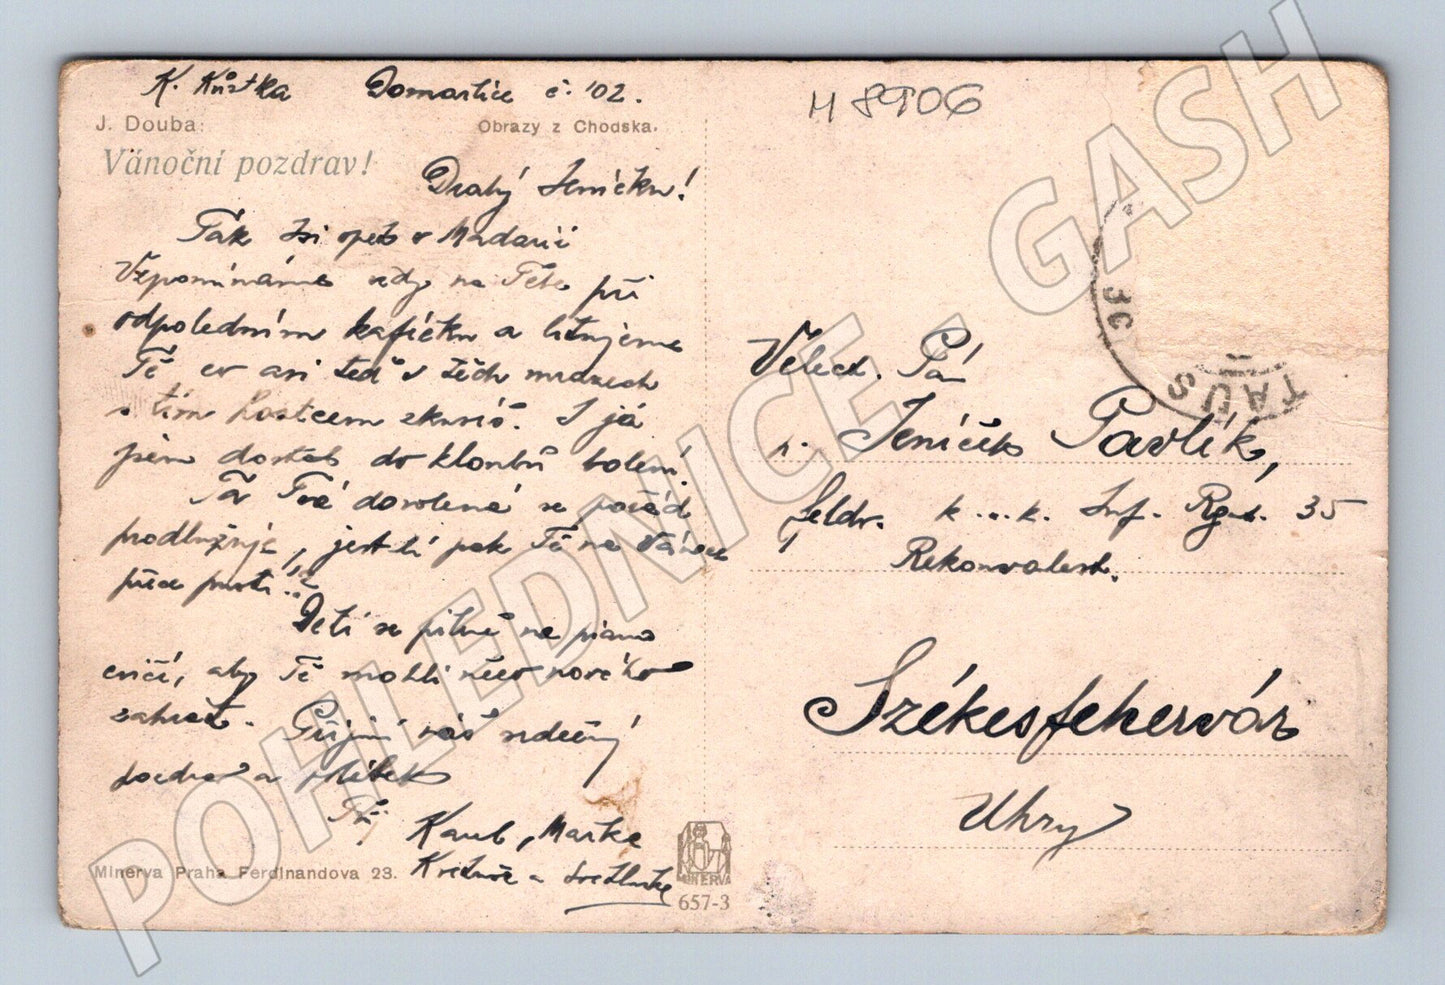 K. Kůstka Domažlice č. 102.
H 8906
J. Douba:
Obrazy z Chodska.
Vánoční pozdrav!
Drahý Jeníčku!
Tak jsi opět v Maďarii
Vzpomínáme vždy na Tebe při
odpoledním kafíčku a litujeme
Tě co asi teď v těch mrazech
s tím hostcem zkusíš. I já
jsem dostal do kloubů bolení.
Ta Tvá dovolená se pořád
prodlužuje, jestli pak Tě na Vánoce
přece pustí!?
Děti se pilně na piano
cvičí, aby Ti mohli něco nového
zahrát. Přijmi náš srdečný
pozdrav a
Karel, Mařka
Minerva Praha Ferdinandova 23.
MINERVA
657-3
30
TAUS
Velect. Pán
p. Jeníček Pavlík,
feldv. k. u. k. Inf. Rgmt. 35
Rekonvalest.
Székesfehervár
Uhry
POHLEDNICE - GASH